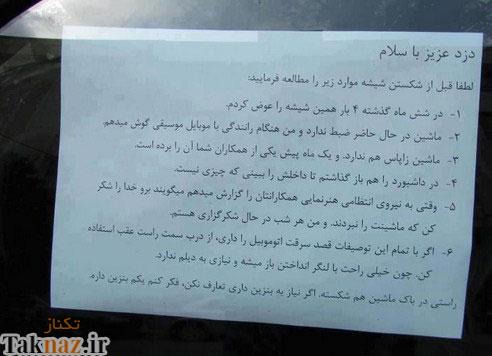 دزد عزیز با سلام
لطفا قبل از شکستن شیشه موارد زیر را مطالعه فرمایید:
۱- در شش ماه گذشته ۴ بار همین شیشه را عوض کردم.
۲- ماشین در حال حاضر ضبط ندارد و من هنگام رانندگی با موبایل موسیقی گوش میدهم.
۳- ماشین زاپاس هم ندارد. و یک ماه پیش یکی از همکاران شما آن را برده است.
۴- در داشبورد را هم باز گذاشتم تا داخلش را ببینی که چیزی نیست.
۵- وقتی به نیروی انتظامی هنرنمایی همکارانتان را گزارش میدهم میگویند برو خدا را شکر
کن که ماشینت را نبردند. و من هر شب در حال شکرگزاری هستم.
۶- اگر با تمام این توصیفات قصد سرقت اتوموبیل را داری، از درب سمت راست عقب استفاده
کن. چون خیلی راحت با لنگر انداختن باز میشه و نیازی به دیلم ندارد.
راستی در باک ماشین هم شکسته. اگر نیاز به بنزین داری تعارف نکن، فکر کنم یکم بنزین داره.
تکناز
Taknaz.ir